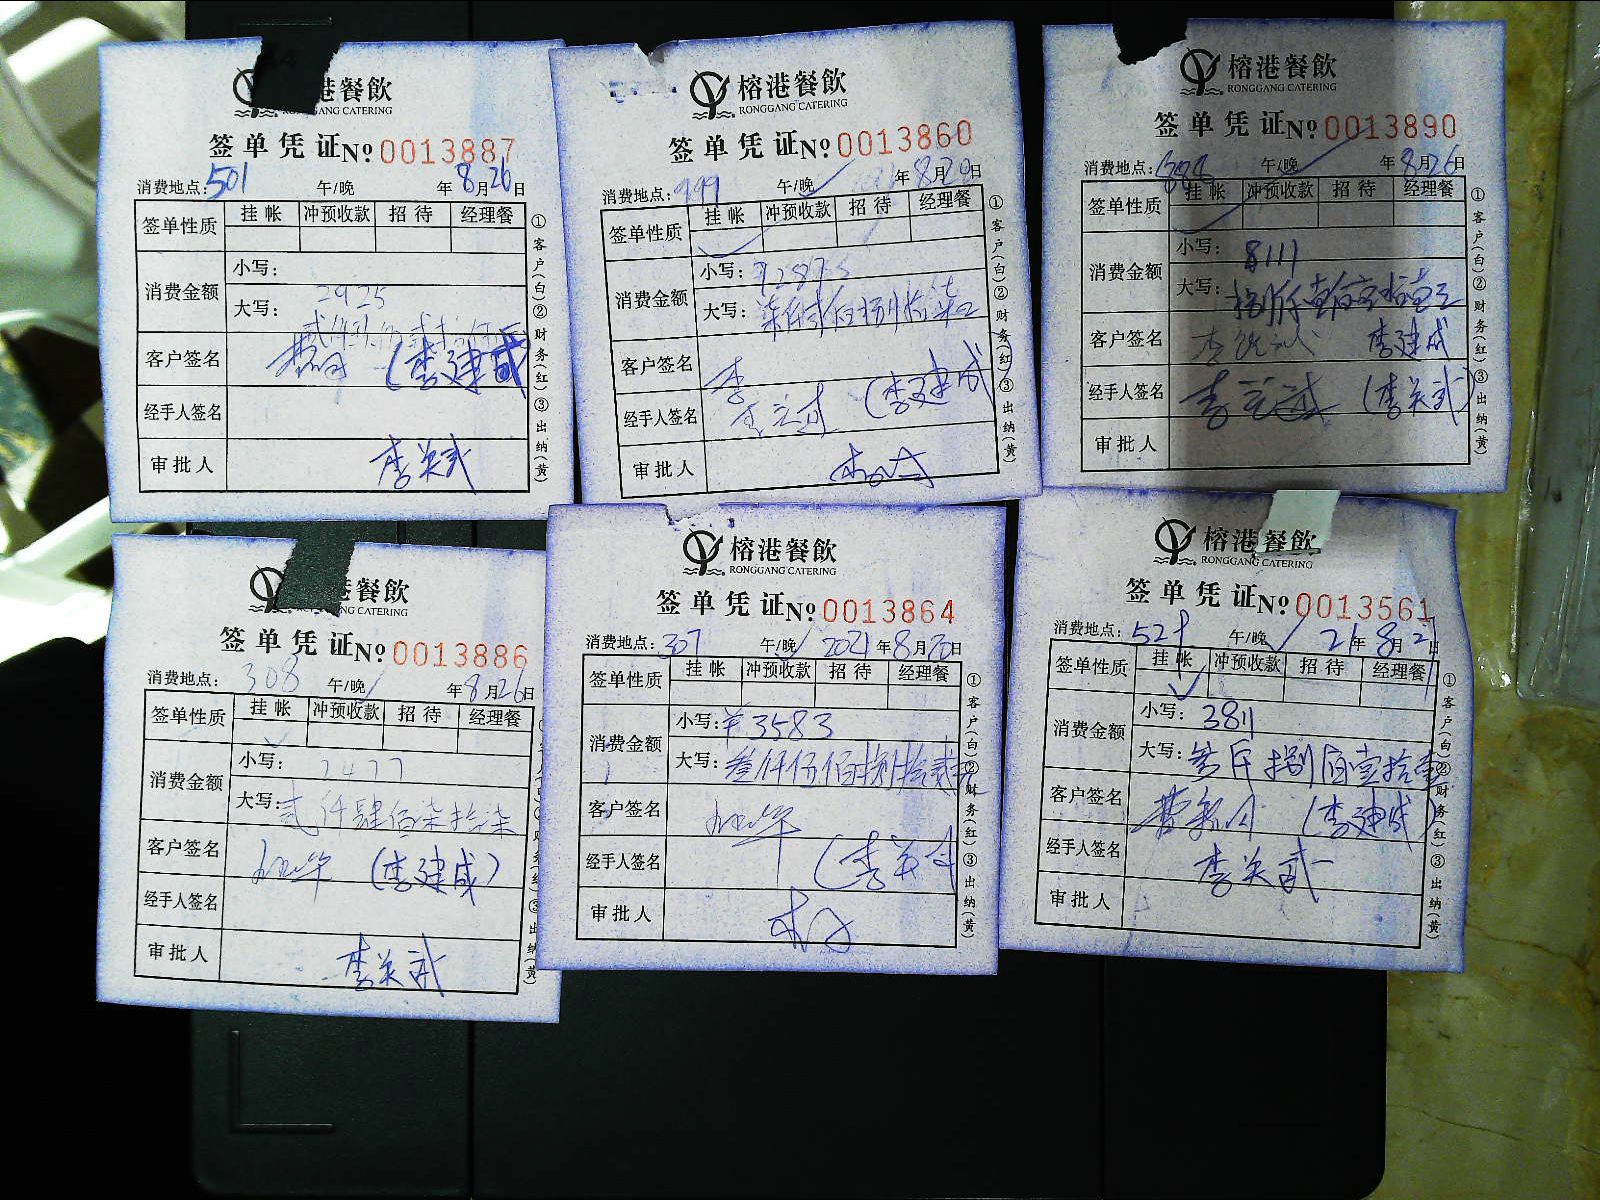 港餐飲
GANG CATERING
签单凭证№0013887
消费地点:501 午/晚 年8月26日
签单性质 挂帐 冲预收款 招待 经理餐
消费金额 小写:
大写: 2925
客户签名 (李建成
经手人签名
审批人 李关武
①客户(白)②财务(红)③出纳(黄)
榕港餐飲
RONGGANG CATERING
签单凭证№0013860
消费地点:999 午/晚 年8月20日
签单性质 挂帐 冲预收款 招待 经理餐
消费金额 小写:
大写:
客户签名 李
经手人签名 (李建成)
审批人
①客户(白)②财务(红)③出纳(黄)
榕港餐飲
RONGGANG CATERING
签单凭证№0013890
消费地点:888 午/晚 年8月26日
签单性质 挂帐 冲预收款 招待 经理餐
消费金额 小写: 8111
大写: 捌仟壹佰壹拾壹元
客户签名 李建成
经手人签名 (李关武)
审批人
①客户(白)②财务(红)③出纳(黄)
港餐飲
RONGGANG CATERING
签单凭证№0013886
消费地点: 308 午/晚 年8月26日
签单性质 挂帐 冲预收款 招待 经理餐
消费金额 小写: 2477
大写:贰仟肆佰柒拾柒
客户签名 (李建成)
经手人签名
审批人 李关武
榕港餐飲
RONGGANG CATERING
签单凭证№0013864
消费地点:307 午/晚 2021年8月20日
签单性质 挂帐 冲预收款 招待 经理餐
消费金额 小写:¥3583
大写:叁仟伍佰捌拾
客户签名
经手人签名 (李关
审批人
①客户(白)②财务(红)③出纳(黄)
榕港餐飲
RONGGANG CATERING
签单凭证№0013561
消费地点: 527 午/晚 21年8月21日
签单性质 挂帐 冲预收款 招待 经理餐
消费金额 小写: 3811
大写:叁仟捌佰壹拾壹
客户签名 (李建成)
经手人签名 李关武
审批人
①客户(白)②财务(红)③出纳(黄)